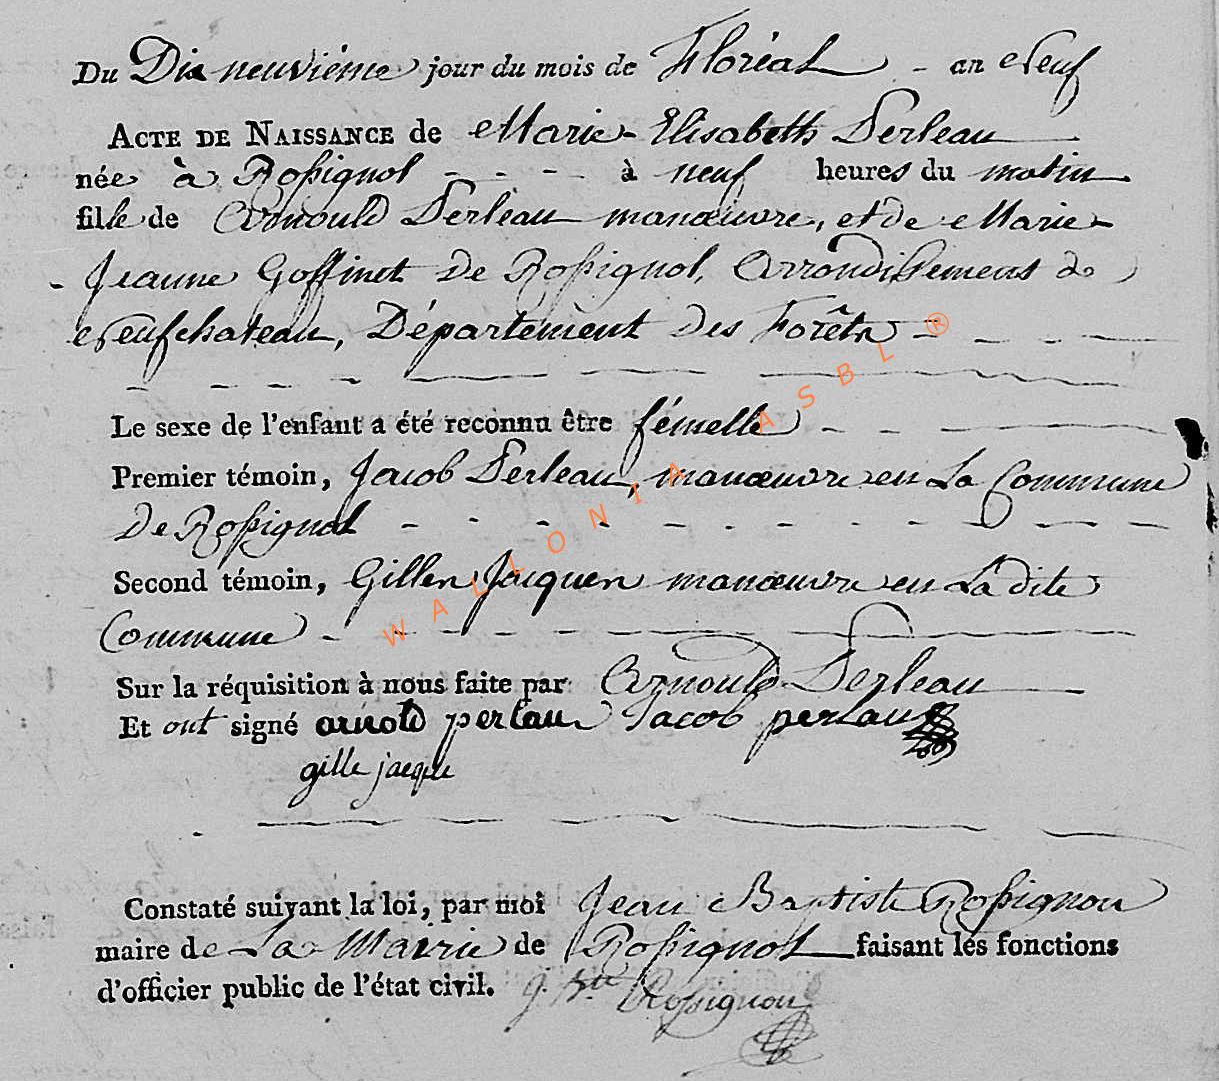 Du Dix neuvième jour du mois de Floréal - an Neuf
ACTE DE NAISSANCE de Marie- Elisabeth Perleau
née à Rossignol - - - - à neuf heures du matin
fille de Arnould Perleau manœuvre, et de Marie-
- Jeanne Goffinet De Rossignol, Arrondissement de
Neufchateau, Département des Forêts
Le sexe de l'enfant a été reconnu être fémelle
Premier témoin, Jacob Perleau, manœuvre en La Commune
De Rossignol
Second témoin, Gilles Jacques manœuvre en La dite
Commune
Sur la réquisition à nous faite par Arnould Perleau
Et ont signé arnold perlau Jacob perlau
gille jacque
Constaté suivant la loi, par moi Jean Baptiste Rossignon
maire de La Mairie de Rossignol faisant les fonctions
d'officier public de l'état civil. J. Bte Rossignon
WALLONIA ASBL ®